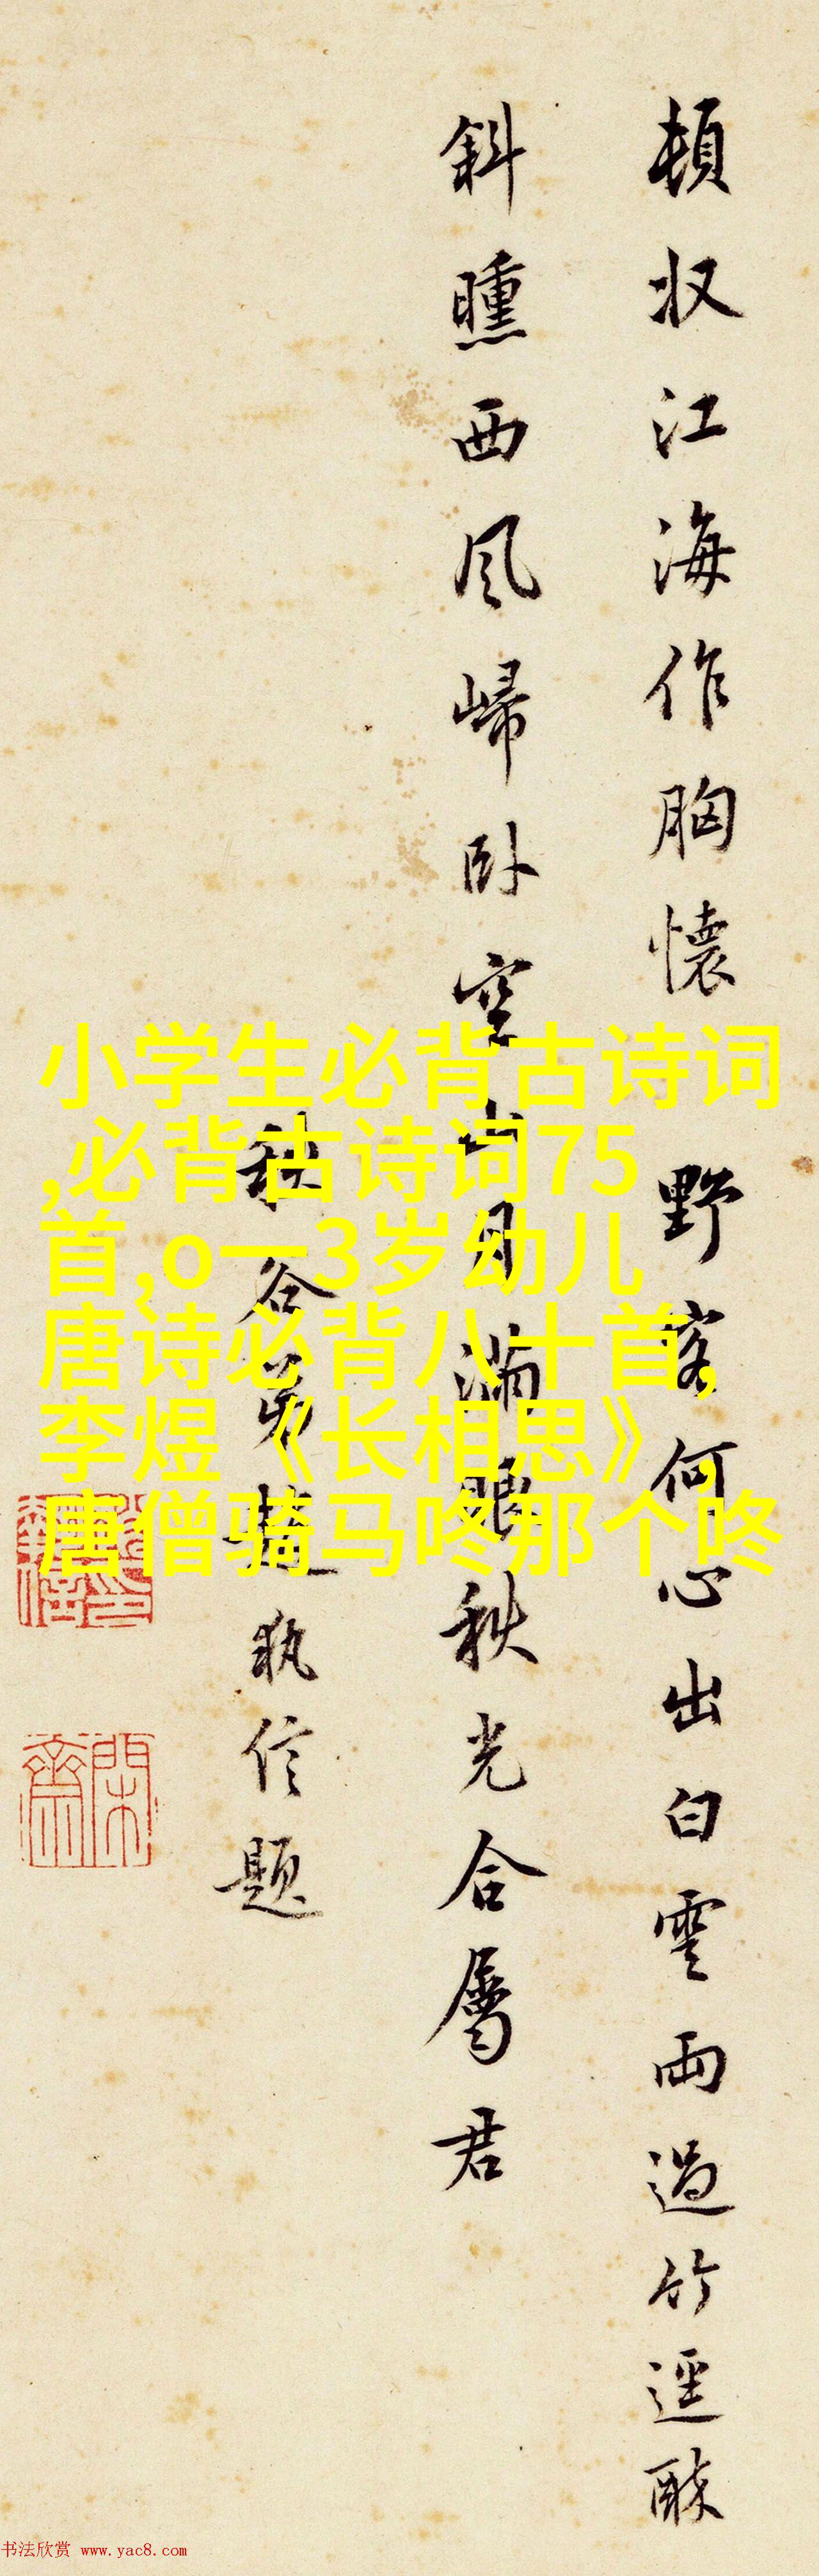 頓收江海作胸懷 野客何心出白雲雨過竹逕醉
斜曛西风歸卧空山月滿眼秋光合屬君
秋谷弟執信題
小学生必背古诗词
,必背古诗词75
首,o一3岁幼儿
唐诗必背八十首,
李煜《长相思》,
唐僧骑马咚那个咚
閑齋
书法欣赏 www.yac8.com